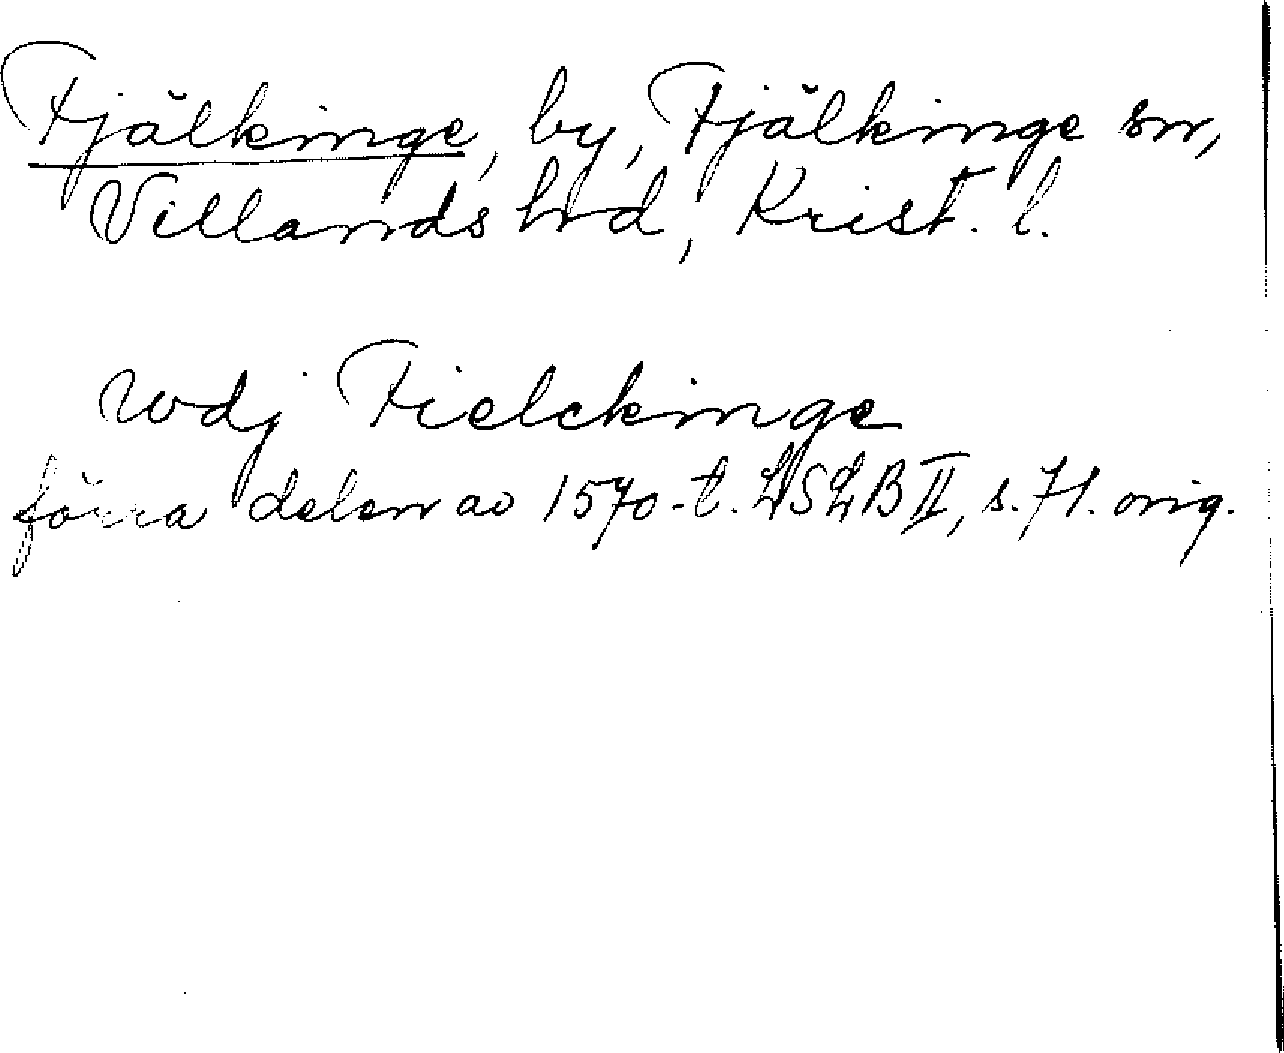 Fjälkinge, by, Fjälkinge sn,
Villands hrd, Krist. l.
wdj Fielckinge
förra delen av 1570-t. LSLB II, s. 71. orig.